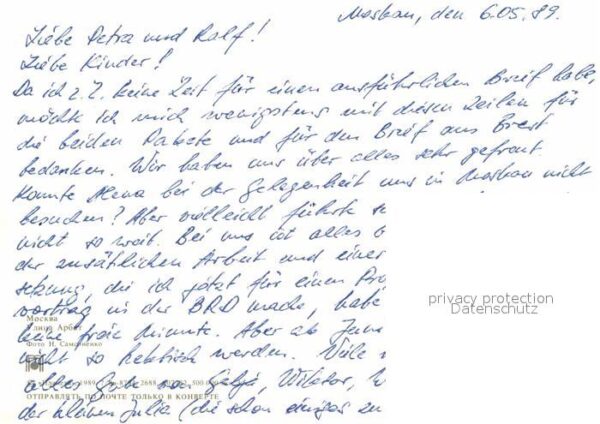 Moskau, den 6.05.89.
Liebe Petra und Ralf!
Liebe Kinder!
Da ich z.Z. keine Zeit für einen ausführlichen Brief habe,
möchte ich mich wenigstens mit diesen Zeilen für
die beiden Pakete und für den Brief aus Brest
bedanken. Wir haben uns über alles sehr gefreut.
Konnte Alena bei der Gelegenheit uns in Moskau nicht
besuchen? Aber vielleicht führte
nicht so weit. Bei uns ist alles
der zusätzlichen Arbeit und einer
setzung, die ich jetzt für einen
vortrag in der BRD mache, habe
keine freie Minute. Aber ab
nicht so hektisch werden. Viele
alles Gute von Galja, Viktor,
der kleinen Julia (die schon einiges zu
Москва
Улица Арбат
Фото
1989
ОТПРАВЛЯТЬ ПО ПОЧТЕ ТОЛЬКО В КОНВЕРТЕ
privacy protection
Datenschutz